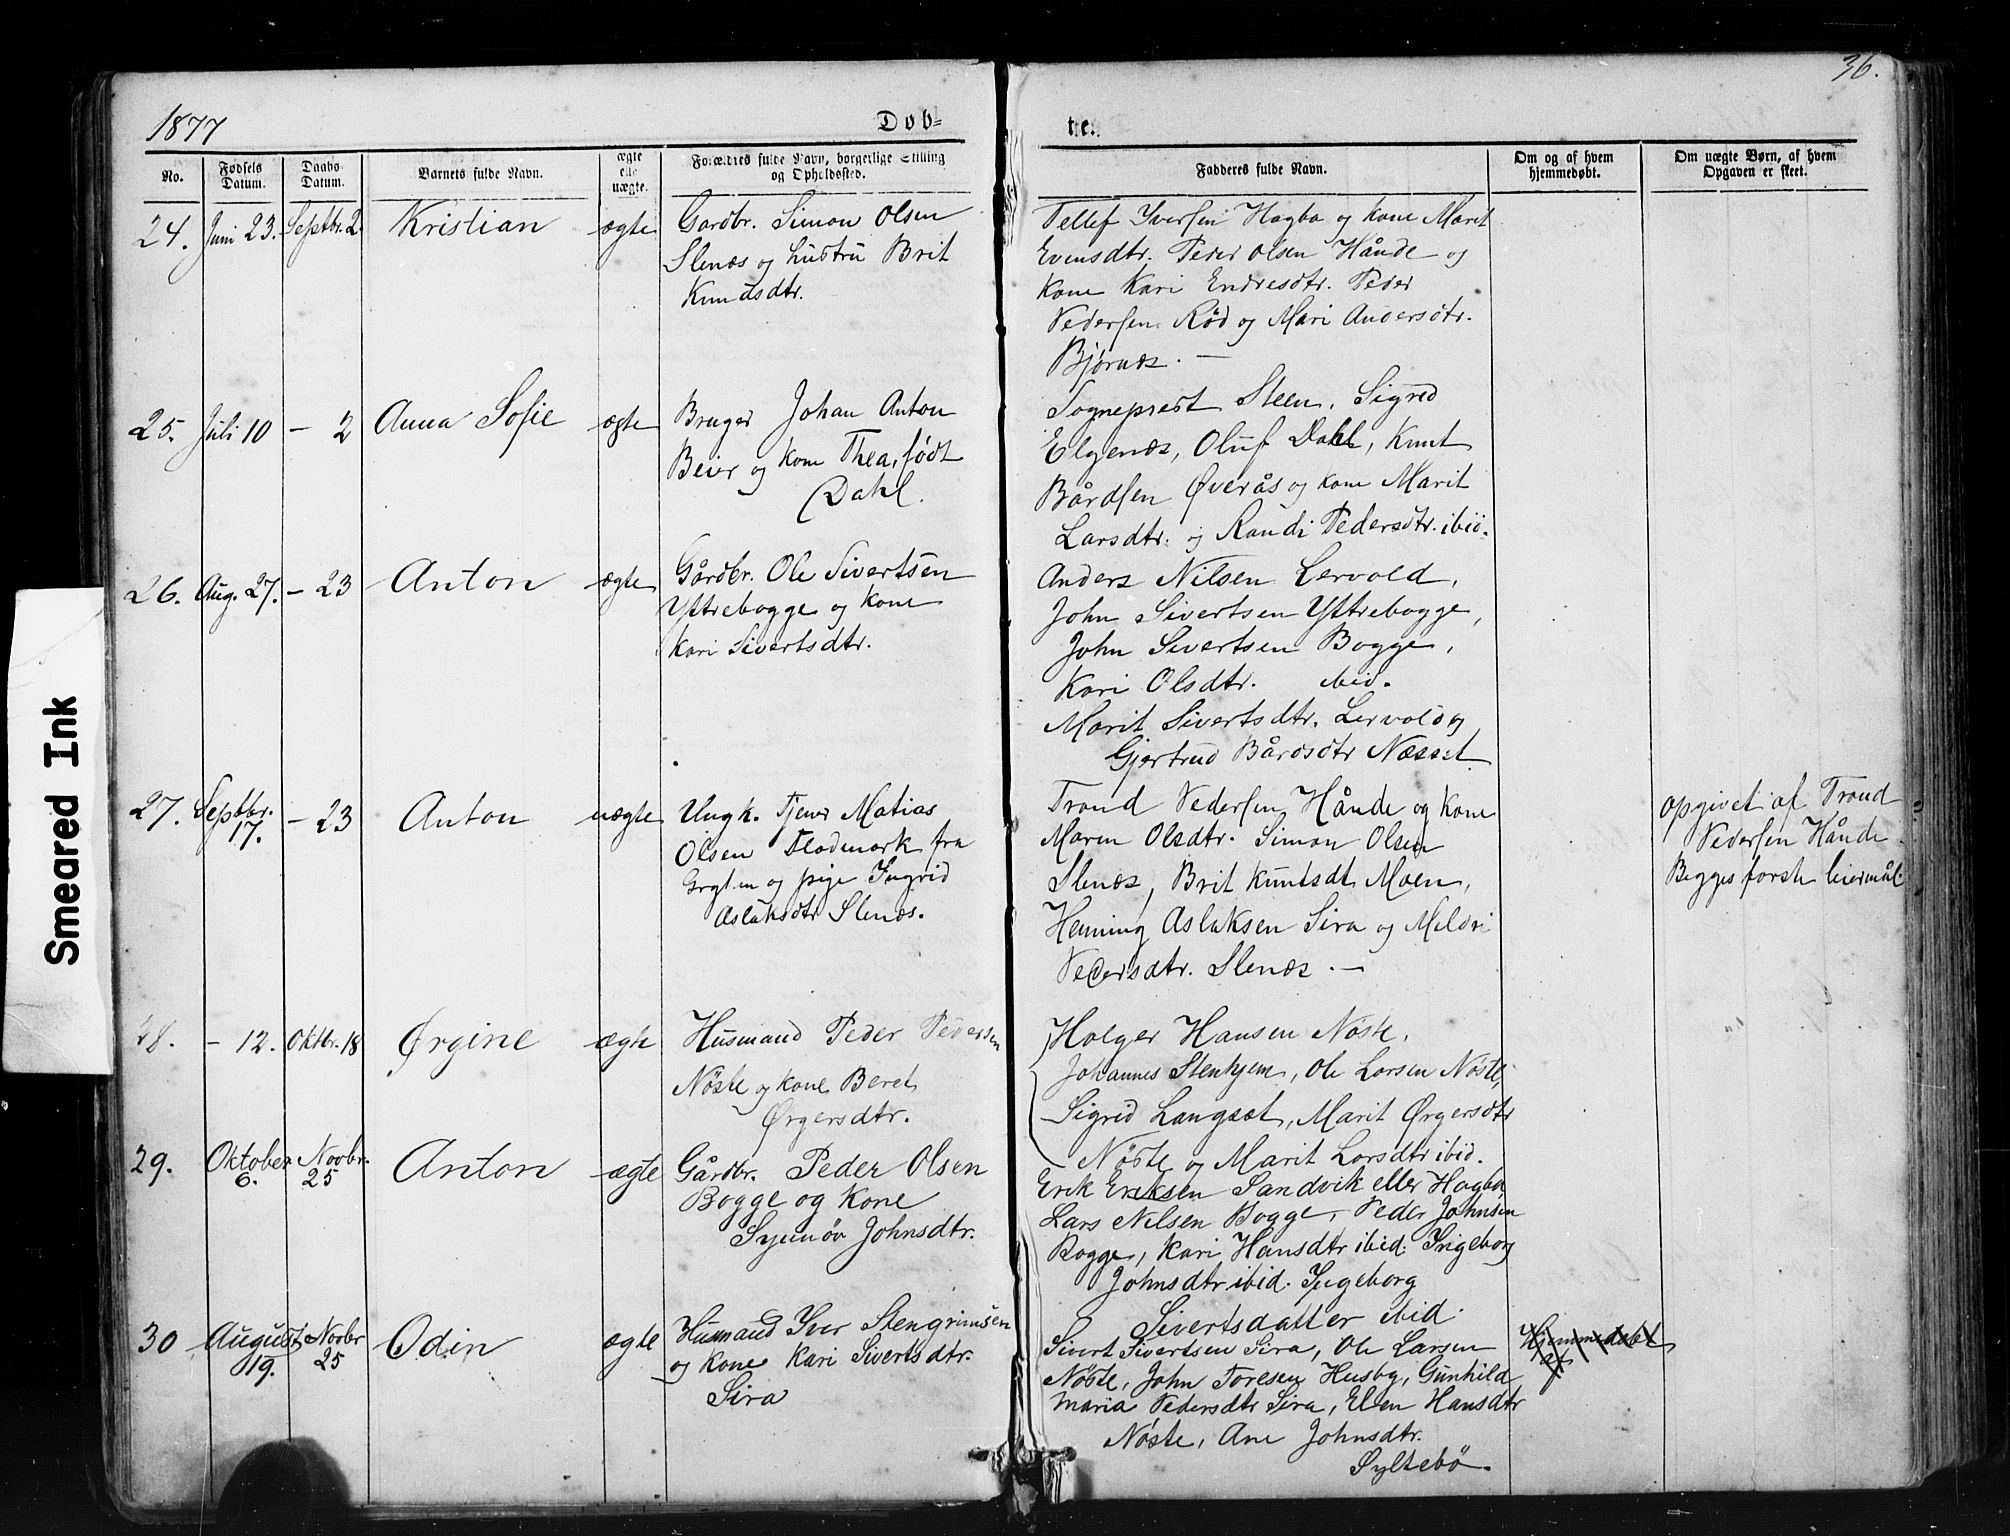 36.
1877
Døb=
te.
No.
Fødsels Datum.
Daabs Datum.
Barnets fulde Navn.
ægte elle uægte.
Forældres fulde Navn, borgerlige Stilling og Opholdssted.
Fadderes fulde Navn.
Om og af hvem hjemmedøbt.
Om uægte Børn, af hvem Opgaven er skeet.
24. Juni 23. Septbr. 2. Kristian ægte
Gardbr. Simon Olsen
Slenæs og hustru Brit
Knudsdtr.
Tellef Iversen Hagbø og kone Marit
Evensdtr. Peder Olsen Hånde og
kone Kari Endresdtr. Peder
Pedersen Rød og Mari Andersdtr.
Bjørnæs. —
25. Juli 10 – 2 Anna Sofie ægte
Bruger Johan Anton
Beier og kone Thea, født
Dahl.
Sogneprest Steen, Sigrid
Elgenæs, Oluf Dahl, Knut
Bårdsen Øverås og kone Marit
Larsdtr. og Randi Pedersdtr. ibid.
26. Aug. 27. – 23 Anton ægte
Gårdbr. Ole Sivertsen
Yttrebogge og kone
Kari Sivertsdtr.
Anders Nilsen Lervold,
John Sivertsen Yttrebogge,
John Sivertsen Bogge,
Kari Olsdtr. ibid.
Marit Sivertsdtr. Lervold og
Gjertrud Bårdsdtr Næsset
27. Septbr. 17. – 23 Anton uægte
Ungk. Tjener Matias
Olsen Flodmark fra
Grytten og pige Ingrid
Aslaksdtr Slenæs.
Trond Pedersen Hånde og kone
Maren Olsdtr. Simon Olsen
Slenæs, Brit Knutsdt Moen,
Henning Aslaksen Sira og Mildri
Pedersdtr. Slenæs. —
opgivet af Trond
Pedersen Hånde.
Begges første leiermål
28. – 12. Oktbr. 18 Ørgine ægte
Husmand Peder Pedersen
Nöste og kone Beret
Ørgersdtr.
Holger Hansen Nöste,
Johannes Stenhjem, Ole Larsen Nöste,
Sigrid Langsæt, Marit Ørgersdtr
Nöste og Marit Larsdtr ibid.
29. Oktober 6. Novbr. 25 Anton ægte
Gårdbr. Peder Olsen
Bogge og kone
Synnöv Johnsdtr.
Erik Eriksen Sandvik eller Hagbø
Lars Nilsen Bogge, Peder Johnsen
Bogge, Kari Hansdtr ibid. Ingeborg
Johnsdtr ibid. Ingeborg
Sivertsdatter ibid.
30 August 19. Novbr 25 Odin ægte
Husmand Iver Stengrimsen
og kone Kari Sivertsdtr.
Sira
Sivert Sivertsen Sira, Ole Larsen
Nöste, John Toresen Husby, Gunhild
Maria Pedersdtr Sira, Elen Hansdtr
Nöste, Ane Johnsdtr.
Syltebö.
Hjemmedøbt
af
Smeared Ink